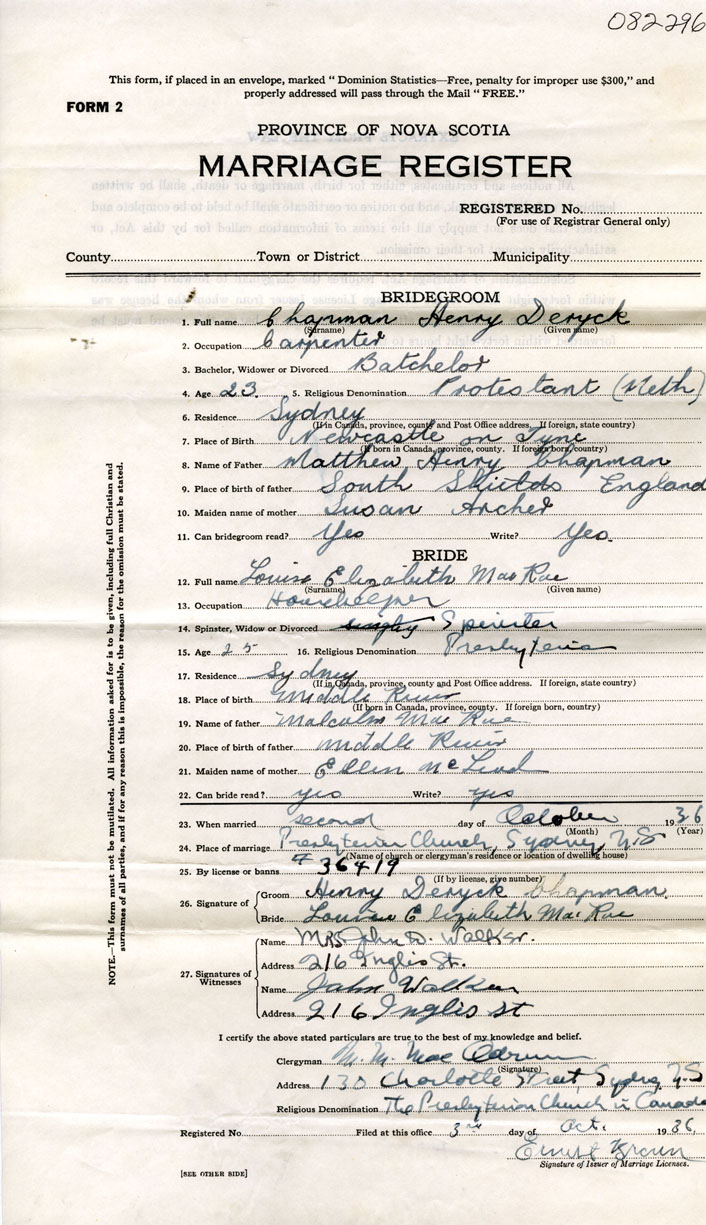 082296
This form, if placed in an envelope, marked " Dominion Statistics—Free, penalty for improper use $300," and
properly addressed will pass through the Mail " FREE."
FORM 2
PROVINCE OF NOVA SCOTIA
MARRIAGE REGISTER
REGISTERED No.
(For use of Registrar General only)
County Town or District Municipality
BRIDEGROOM
1. Full name Chapman Henry Deryck
(Surname) (Given name)
2. Occupation Carpenter
3. Bachelor, Widower or Divorced Batchelor
4. Age 23. 5. Religious Denomination Protestant (Meth)
6. Residence Sydney
(If in Canada, province, county and Post Office address. If foreign, state country)
7. Place of Birth Newcastle on Tyne
(If born in Canada, province, county. If foreign born, country)
8. Name of Father Matthew Henry Chapman
9. Place of birth of father South Shields England
10. Maiden name of mother Susan Archer
11. Can bridegroom read? Yes Write? Yes.
BRIDE
12. Full name Louise Elizabeth MacRae
(Surname) (Given name)
13. Occupation Housekeeper
14. Spinster, Widow or Divorced Spinster
15. Age 25 16. Religious Denomination Presbyterian
17. Residence Sydney
(If in Canada, province, county and Post Office address. If foreign, state country)
18. Place of birth Middle River
(If born in Canada, province, county. If foreign born, country)
19. Name of father Malcolm MacRae
20. Place of birth of father Middle River
21. Maiden name of mother Ellen McLeod
22. Can bride read? yes Write? yes
23. When married second day of October 1936
(Month) (Year)
24. Place of marriage Presbyterian Church, Sydney, N.S
(Name of church or clergyman's residence or location of dwelling house)
25. By license or banns # 36419
(If by license, give number)
26. Signature of
Groom Henry Deryck Chapman.
Bride Louise Elizabeth MacRae
27. Signatures of Witnesses
Name Mrs John D. Walker.
Address 216 Inglis St.
Name John Walker
Address 216 Inglis st
I certify the above stated particulars are true to the best of my knowledge and belief.
Clergyman M. Mac
(Signature)
Address 130 Charlotte Street Sydney, N.S
Religious Denomination The Presbyterian Church in Canada
Registered No. Filed at this office 3rd day of Oct. 1936.
Ernest
Signature of Issuer of Marriage Licenses.
[SEE OTHER SIDE]
NOTE.—This form must not be mutilated. All information asked for is to be given, including full Christian and
surnames of all parties, and if for any reason this is impossible, the reason for the omission must be stated.